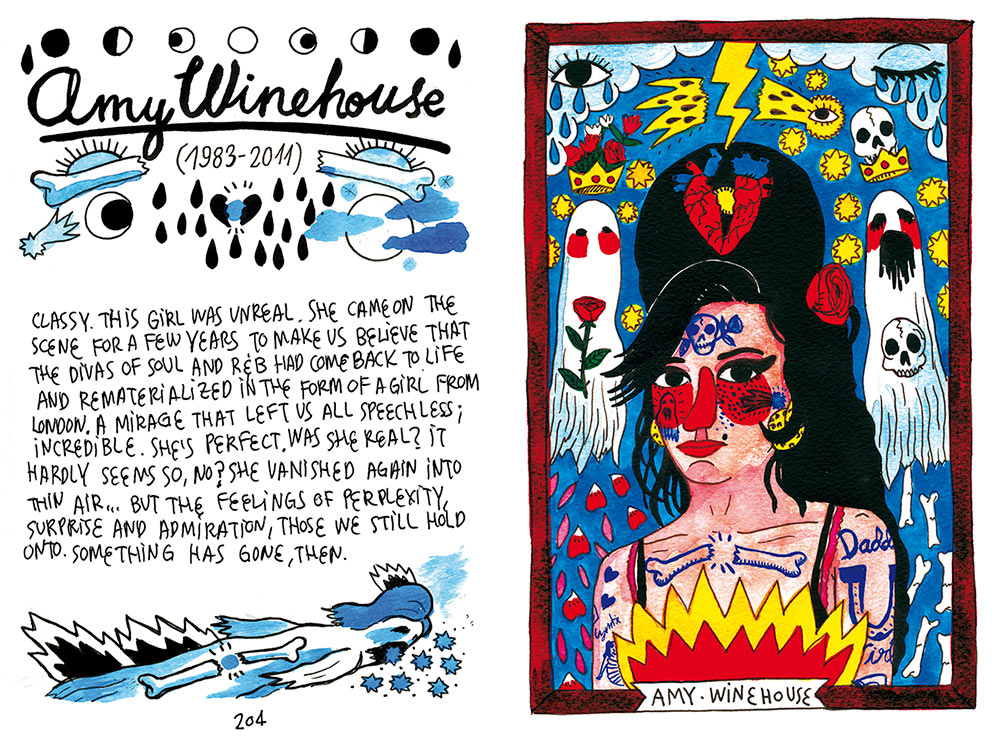 Amy Winehouse
(1983-2011)
CLASSY. THIS GIRL WAS UNREAL. SHE CAME ON THE
SCENE FOR A FEW YEARS TO MAKE US BELIEVE THAT
THE DIVAS OF SOUL AND R&B HAD COME BACK TO LIFE
AND REMATERIALIZED IN THE FORM OF A GIRL FROM
LONDON. A MIRAGE THAT LEFT US ALL SPEECHLESS;
INCREDIBLE. SHE'S PERFECT. WAS SHE REAL? IT
HARDLY SEEMS SO, NO? SHE VANISHED AGAIN INTO
THIN AIR... BUT THE FEELINGS OF PERPLEXITY,
SURPRISE AND ADMIRATION, THOSE WE STILL HOLD
ONTO. SOMETHING HAS GONE, THEN.
204
Daddy
AMY · WINEHOUSE